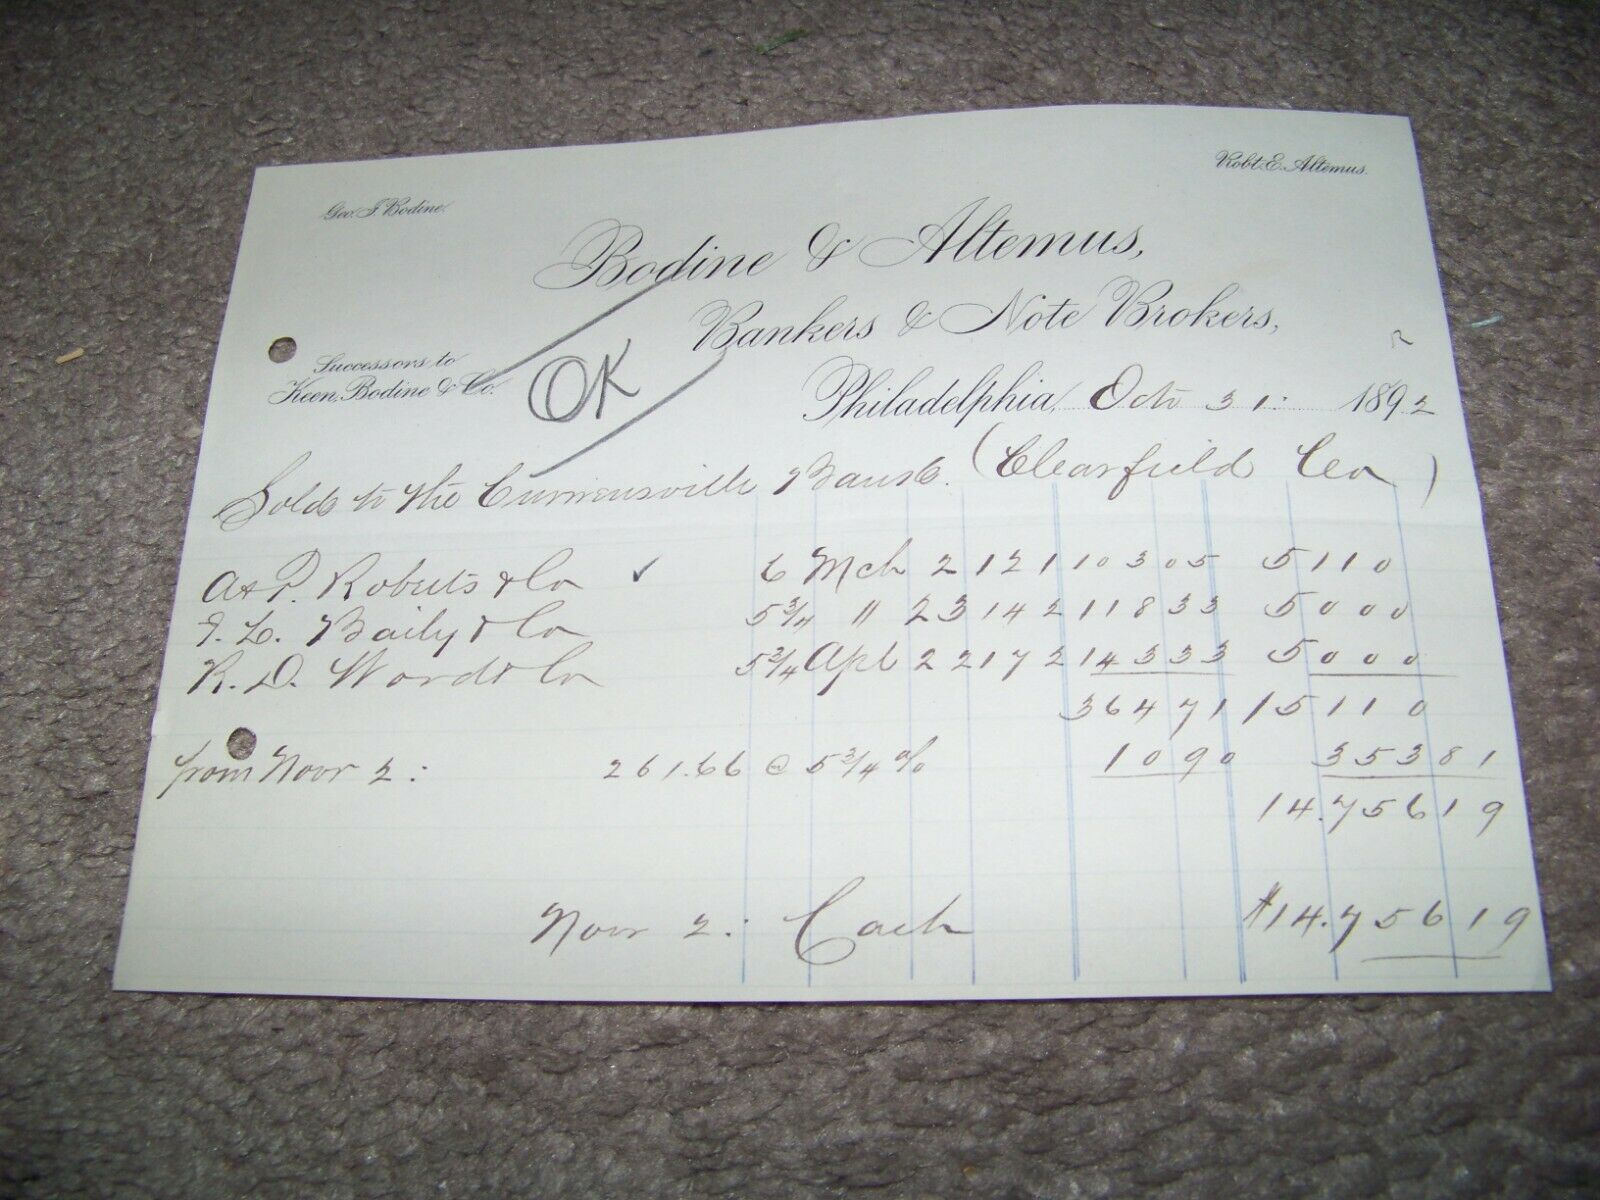 Geo. F. Bodine.
Robt. E. Altemus.
Bodine & Altemus,
Bankers & Note Brokers,
Successors to
Keen, Bodine & Co.
OK
Philadelphia, Oct 31: 1892
Sold to the Curwensville Bank. (Clearfield Co)
A & P. Roberts & Co ✓ 6 Mch 2 121 103 05 5110
Baily & Co 5 3/4 " 23 142 118 33 5000
R. D. Wood & Co 5 3/4 Apl 22 172 143 33 5000
364 71 15110
from Novr 2: 261.66 @ 5 3/4 % 10 90 353 81
14.756 19
Novr 2: Cash $14.756 19